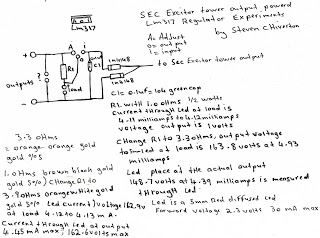 SEC Exciter tower output powered
Lm317 Regulator Experiments
by Steven Chiverton
AOI
Lm317
A = Adjust
o = output
i = input
A
o
i
1n4148
1n4148
to Sec Exciter tower output
+
outputs
?
R1
load
C1
-
C1 = 0.1uf = 104 green cap
R1 with 1.0 ohms 1/2 watts
current through led at load is
4.11 milliamps to 4.12 milliamps
voltage output is 1 volts
Change R1 to 3.30hms, output voltage
to led at load is 163.8 volts at 4.93
milliamps
Led place at the actual output
148.7 volts at 4.39 milliamps is measured
through led.
Led is a 5mm Red diffused Led
Forward voltage 2.3 volts 30 mA max
3.3 ohms
= orange orange gold
gold 5%
1.0 hms brown black gold
gold 5% ) Change R1 to
3.9 ohms orange white gold
gold 5% Led current / voltage 162.9v
at load 4.12 to 4.13 mA.
Current through led at output
4.45 mA max / 162.6 volts max